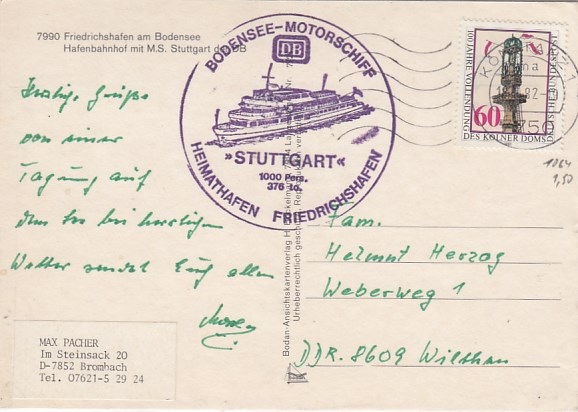 7990 Friedrichshafen am Bodensee
Hafenbahnhof mit M.S. Stuttgart der DB
BODENSEE-MOTORSCHIFF
DB
»STUTTGART«
1000 Pers.
376 to.
HEIMATHAFEN FRIEDRICHSHAFEN
100 JAHRE VOLLENDUNG
DES KÖLNER DOMS
DEUTSCHE BUNDESPOST
60
82
750
1064
1,50
Herzliche Grüße
von einer
Tagung auf
dem See bei herrlichem
Wetter sendet Euch allen
Fam.
Helmut Herzog
Weberweg 1
DDR. 8609 Wilthen
Bodan-Ansichtskartenverlag
Urheberrechtlich geschützt.
MAX PACHER
Im Steinsack 20
D-7852 Brombach
Tel. 07621-5 29 24